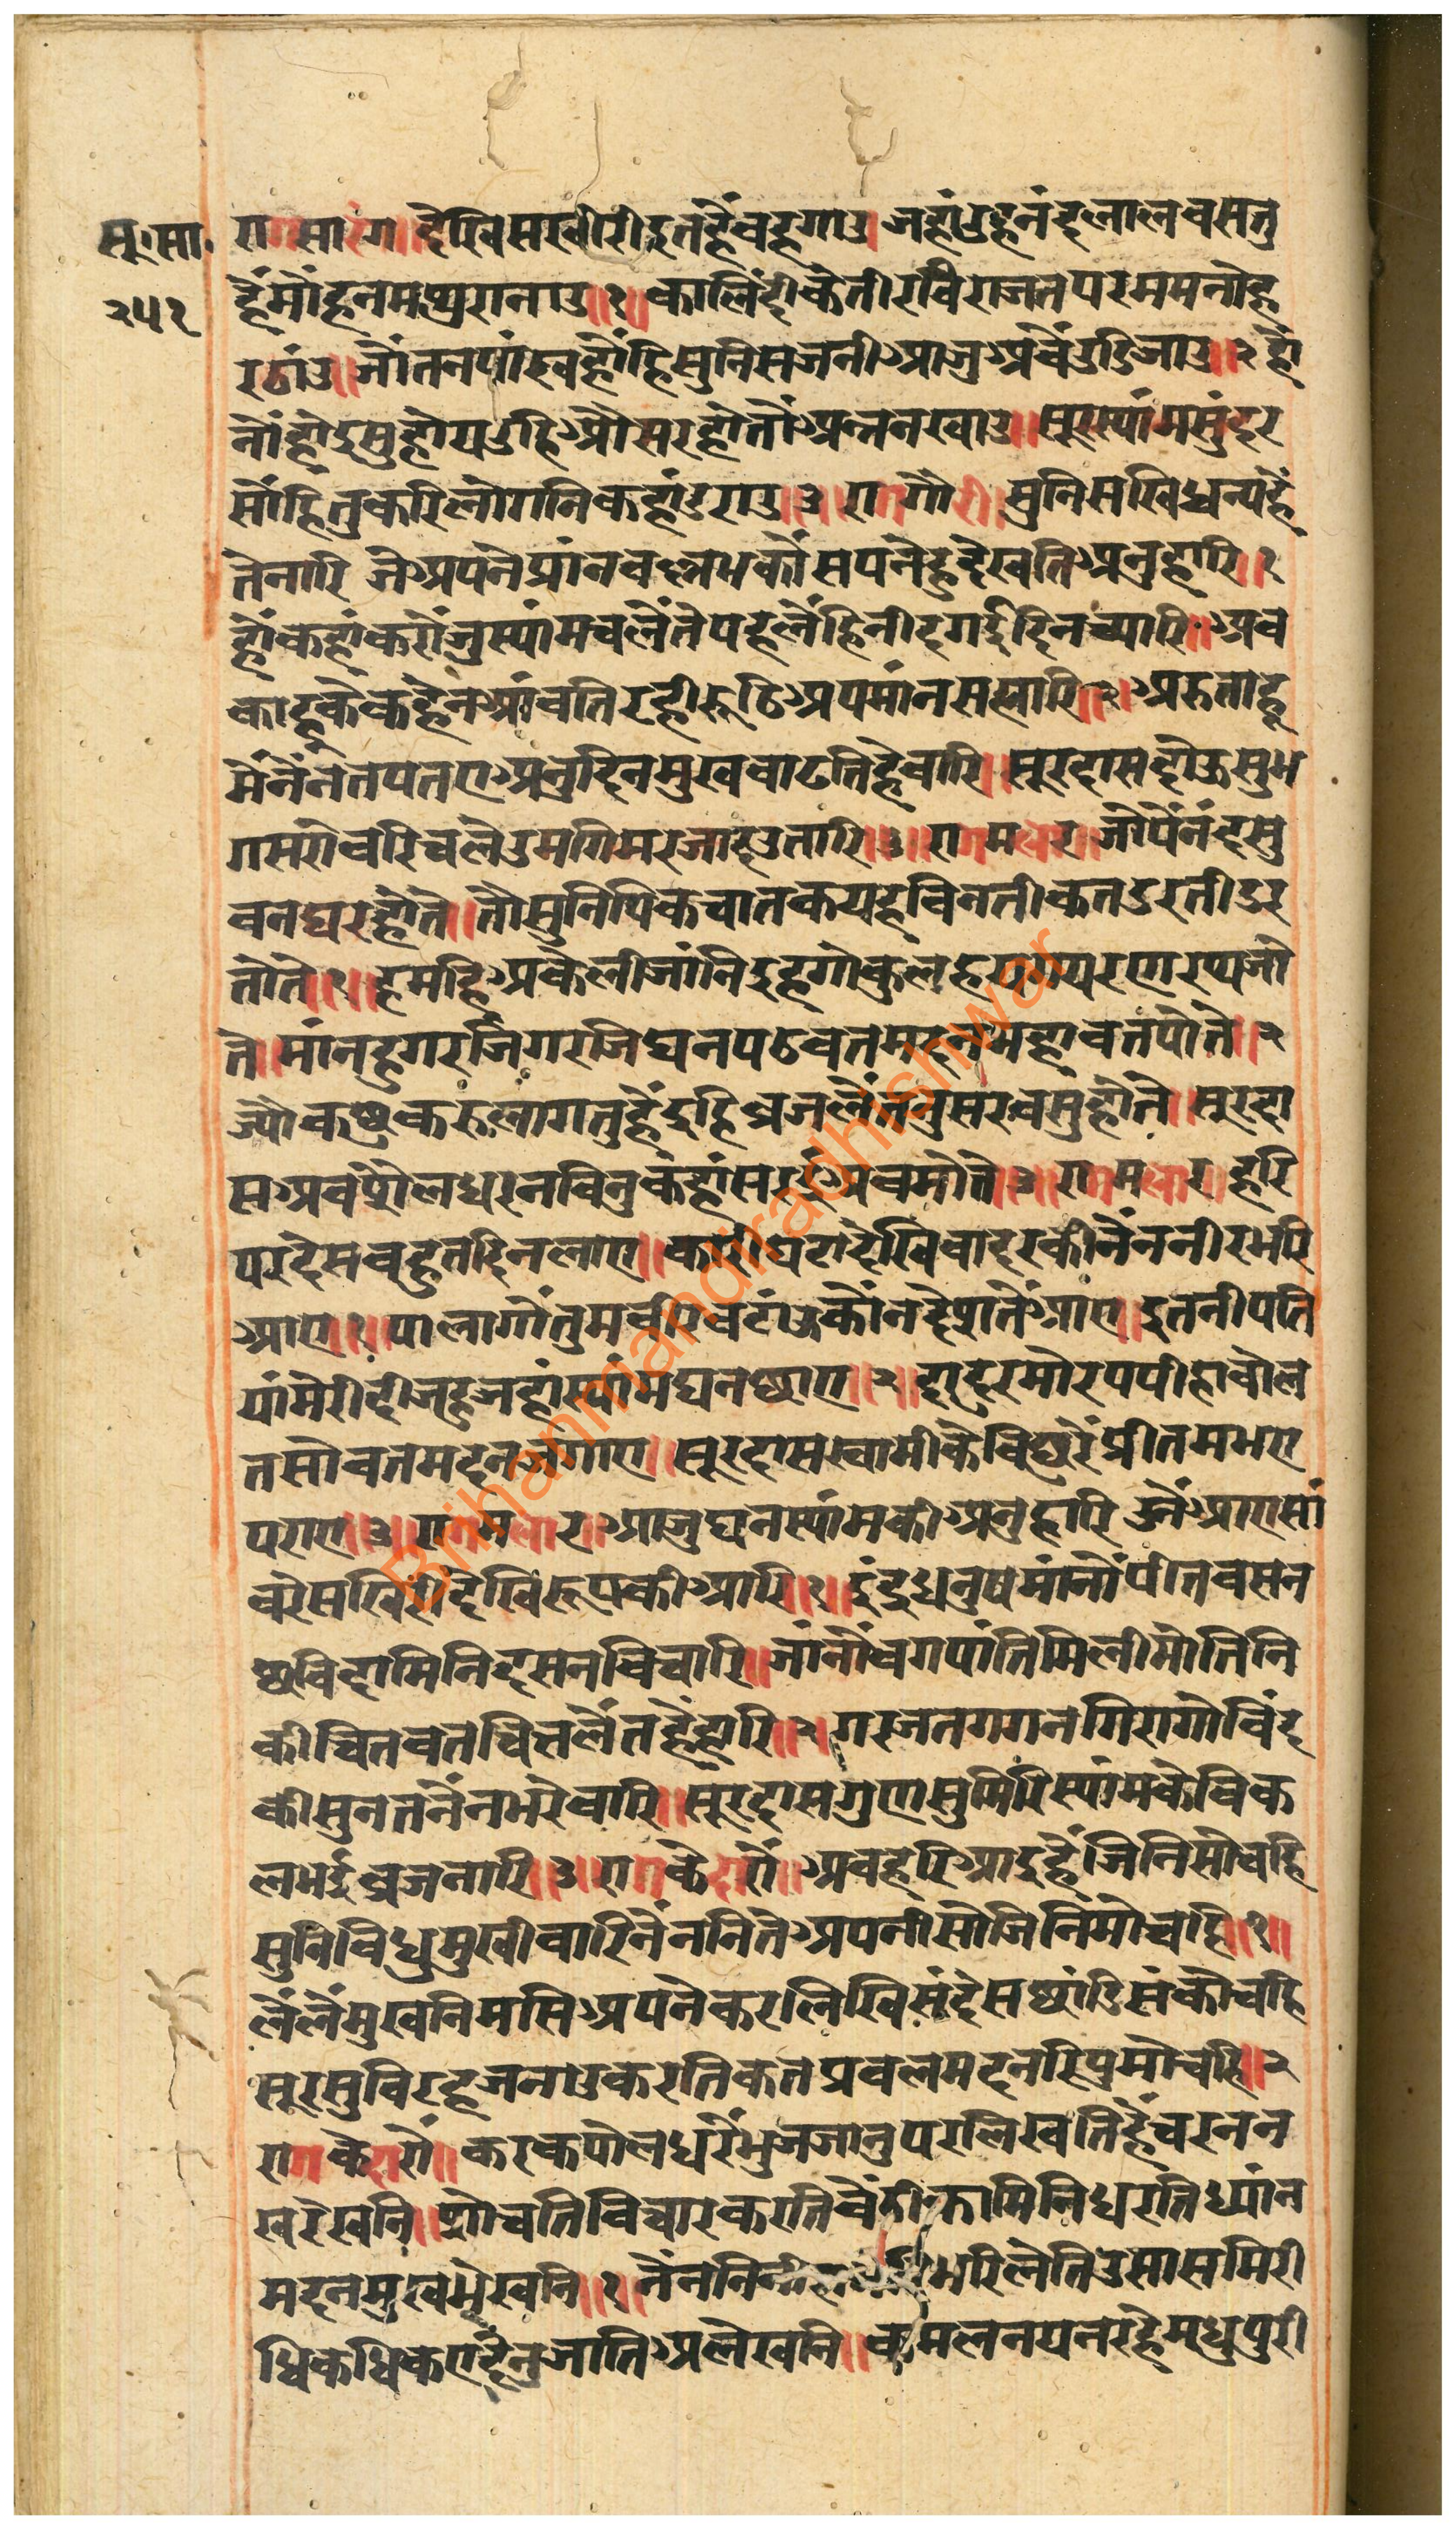 सू॰सा॰
२५२
रागसारंग॥देखिसखीरीइतहैंवहगाउ।जहांउहनंदलालवसतु
हैंमोंहनमथुरानाउ॥१॥कालिंदीकेतीरविराजतपरममनोह
रठांउ॥जौंतनपांखहोंहिसुनिसजनीआजुअवैंउडिजाउ॥२हों
नोंहोइसुहोयउहिऔसरहोंतोंअन्ननखाउ॥सूरस्यांमसुंदर
सोंहितुकरिलोगनिकहांडराउ॥३॥रागगौरी॥सुनिसखिधन्यहैं
तेनारि जेअपनेप्रांनवल्लभकोंसपनेहुदेखतिअनुहारि॥१
होंकहांकरोंजुस्यांमचलेंतेपहलेंहिनीदगईदिनच्यारि॥अव
काहूकेकहेंनआंवतिरहीरूठिअपमांनसम्हारि॥२॥अरुताहू
मेंनेंनतपतएअनुदिनमुखवाढतिहैवारि॥सूरदासदोऊसुभ
गसरोवरिचलेउमगिमरजादउतारि॥३॥रागमलार॥जोंपेंनंदसु
वनघरहोंते॥तौसुनिपिकचातकयहविनतीकतडरतीडर
तोंते॥१॥हमहिअकेलीजांनिइहगोकुल
ते॥मांनहुगरजिगरजिघनपठवतमदनमहावतपोते॥२
ज्योंकछुकरुलागतुहैंइहिव्रजलेंतजुसरवसुहोंते॥सूरदा
सअवसैलधरनविनुकंहांसरइअवमोते॥३॥रागमलार॥हरि
परदेसवहुतदिनलाए॥कारीघटादेखिवादरकीनेंननीरभरि
आए॥१॥पालागोंतुमवीरवटाऊकोंनदेशतेंआए॥इतनीपति
यांमेरीदीजहुजहांस्यांमघनछाए॥२॥दादुरमोरपपीहावोल
तसोवतमदनजगाए॥सूरदासस्वामीकेविछुरेंप्रीतमभए
पराए॥३॥रागमलार॥आजुघनस्यांमकीअनुहारि उनेंआएसां
वरेसखिरीदेखिरूपकीआरि॥१॥इंदुधनुषमांनोंपीतवसन
छविदामिनिदसनविचारि॥जांनोंवगपांतिमिलीमोतिनि
कीचितवतचित्तलेंतहैंहारि॥२॥गरजतगगनगिरागोविंद
कीसुनतनेंनभरेवारि॥सूरदासगुणसुमिरिस्यांमकेविक
लभईव्रजनारि॥३॥रागकेदारों॥अवहरिआइहैंजिनिसोचहि
सुनिविधुमुखीवारिनेंननितेअपनीसोंजिनिमोचहि॥१॥
लेंलेंमुखनिमसिअपनेकरलिखिसंदेसछांडिसंकोचहि
सूरसुविरहजनाउकरतिकतप्रवलमदनरिपुमोचहि॥२
रागकेदारों॥करकपोलधरिभुजजानुपरलिखतिहैंचरनन
खरेखनि॥शोचतिविचारकरतिवेंठीकामिनिधरतिध्यांन
मदनमुखभेखनि॥१॥नेंननिनी भरिलेतिउसासमिरी
धिकधिकएदिनुजातिअलेखनि॥कमलनयनरहेमधुपुरी
Brihanmandiradhishwar